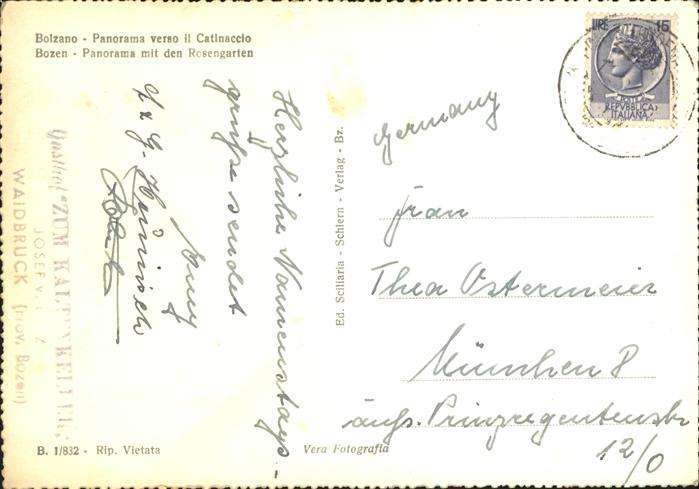 Bolzano - Panorama verso il Catinaccio
Bozen - Panorama mit den Rosengarten
LIRE 15
REPVBBLICA
ITALIANA
Germany
Frau
Thea Ostermeier
München 8
äuß. Prinzregentenstr
12/0
Herzliche Namenstags-
grüße sendet
Heinrich
Gasthof "ZUM KALTEN KELLER"
JOSEF v.
WAIDBRUCK (prov. Bozen)
Ed. Scillaria - Schlern - Verlag - Bz.
B. 1/832 - Rip. Vietata
Vera Fotografia